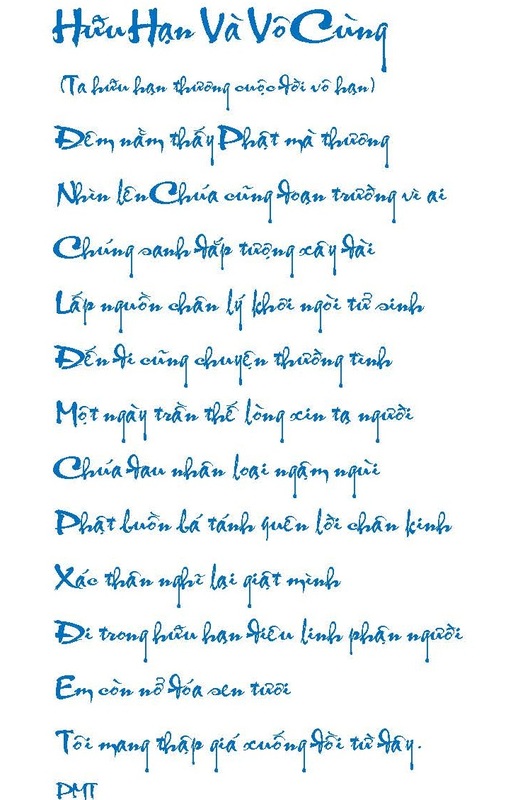 Hữu Hạn Và Vô Cùng
(Ta hữu hạn thương cuộc đời vô hạn)
Đêm nằm thấy Phật mà thương
Nhìn lên Chúa cũng đoạn trường vì ai
Chúng sanh đắp tượng xây đài
Lấp nguồn chân lý khôi ngòi tử sinh
Đến đi cũng chuyện thường tình
Một ngày trần thế lòng xin tạ người
Chúa đau nhân loại ngậm ngùi
Phật buồn bá tánh quên lời chân kinh
Xác thân nghĩ lại giật mình
Đi trong hữu hạn điêu linh phận người
Em còn nở đóa sen tươi
Tôi mang thập giá xuống đồi từ đây.
PMT